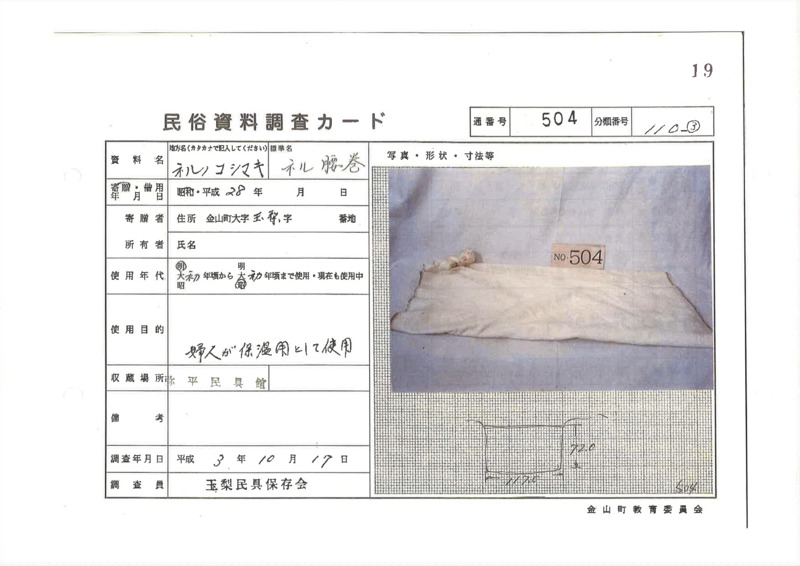 19
民俗資料調査カード
通番号 504 分類番号 110-③
資料名 地方名(カタカナで記入してください) 標準名
ネルノコシマキ ネル腰巻
写真・形状・寸法等
寄贈・借用年月日 昭和・平成 28年 月 日
寄贈者 住所 金山町大字玉梨字 番地
所有者 氏名
使用年代 明大昭 初年頃から 明大昭 初年頃まで使用・現在も使用中
使用目的 婦人が保温用として使用
収蔵場所 弥平民具館
備考
調査年月日 平成 3年 10月 17日
調査員 玉梨民具保存会
NO. 504
72.0
117.0
504
金山町教育委員会